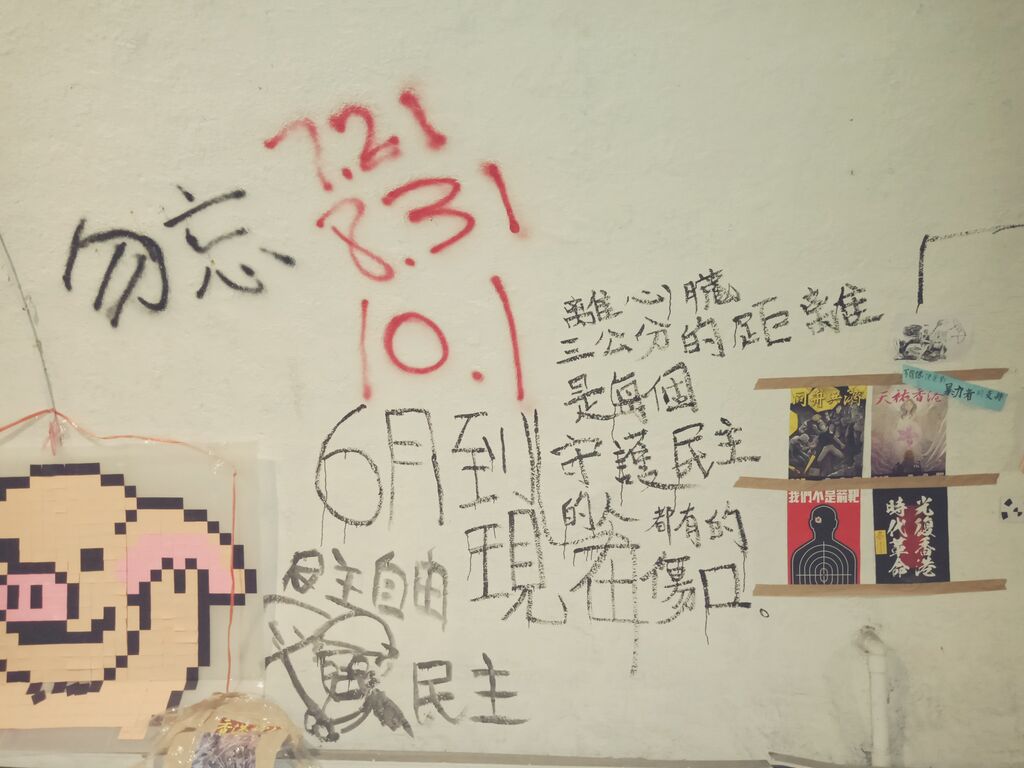 勿忘
7.21
8.31
10.1
6月到
現在
民主自由
民主
離心臟
三公分的距離
是每個
守護民主
的人都有的
傷口。
暴力者
同舟共濟
天祐香港
我們不是箭靶
光復香港
時代革命